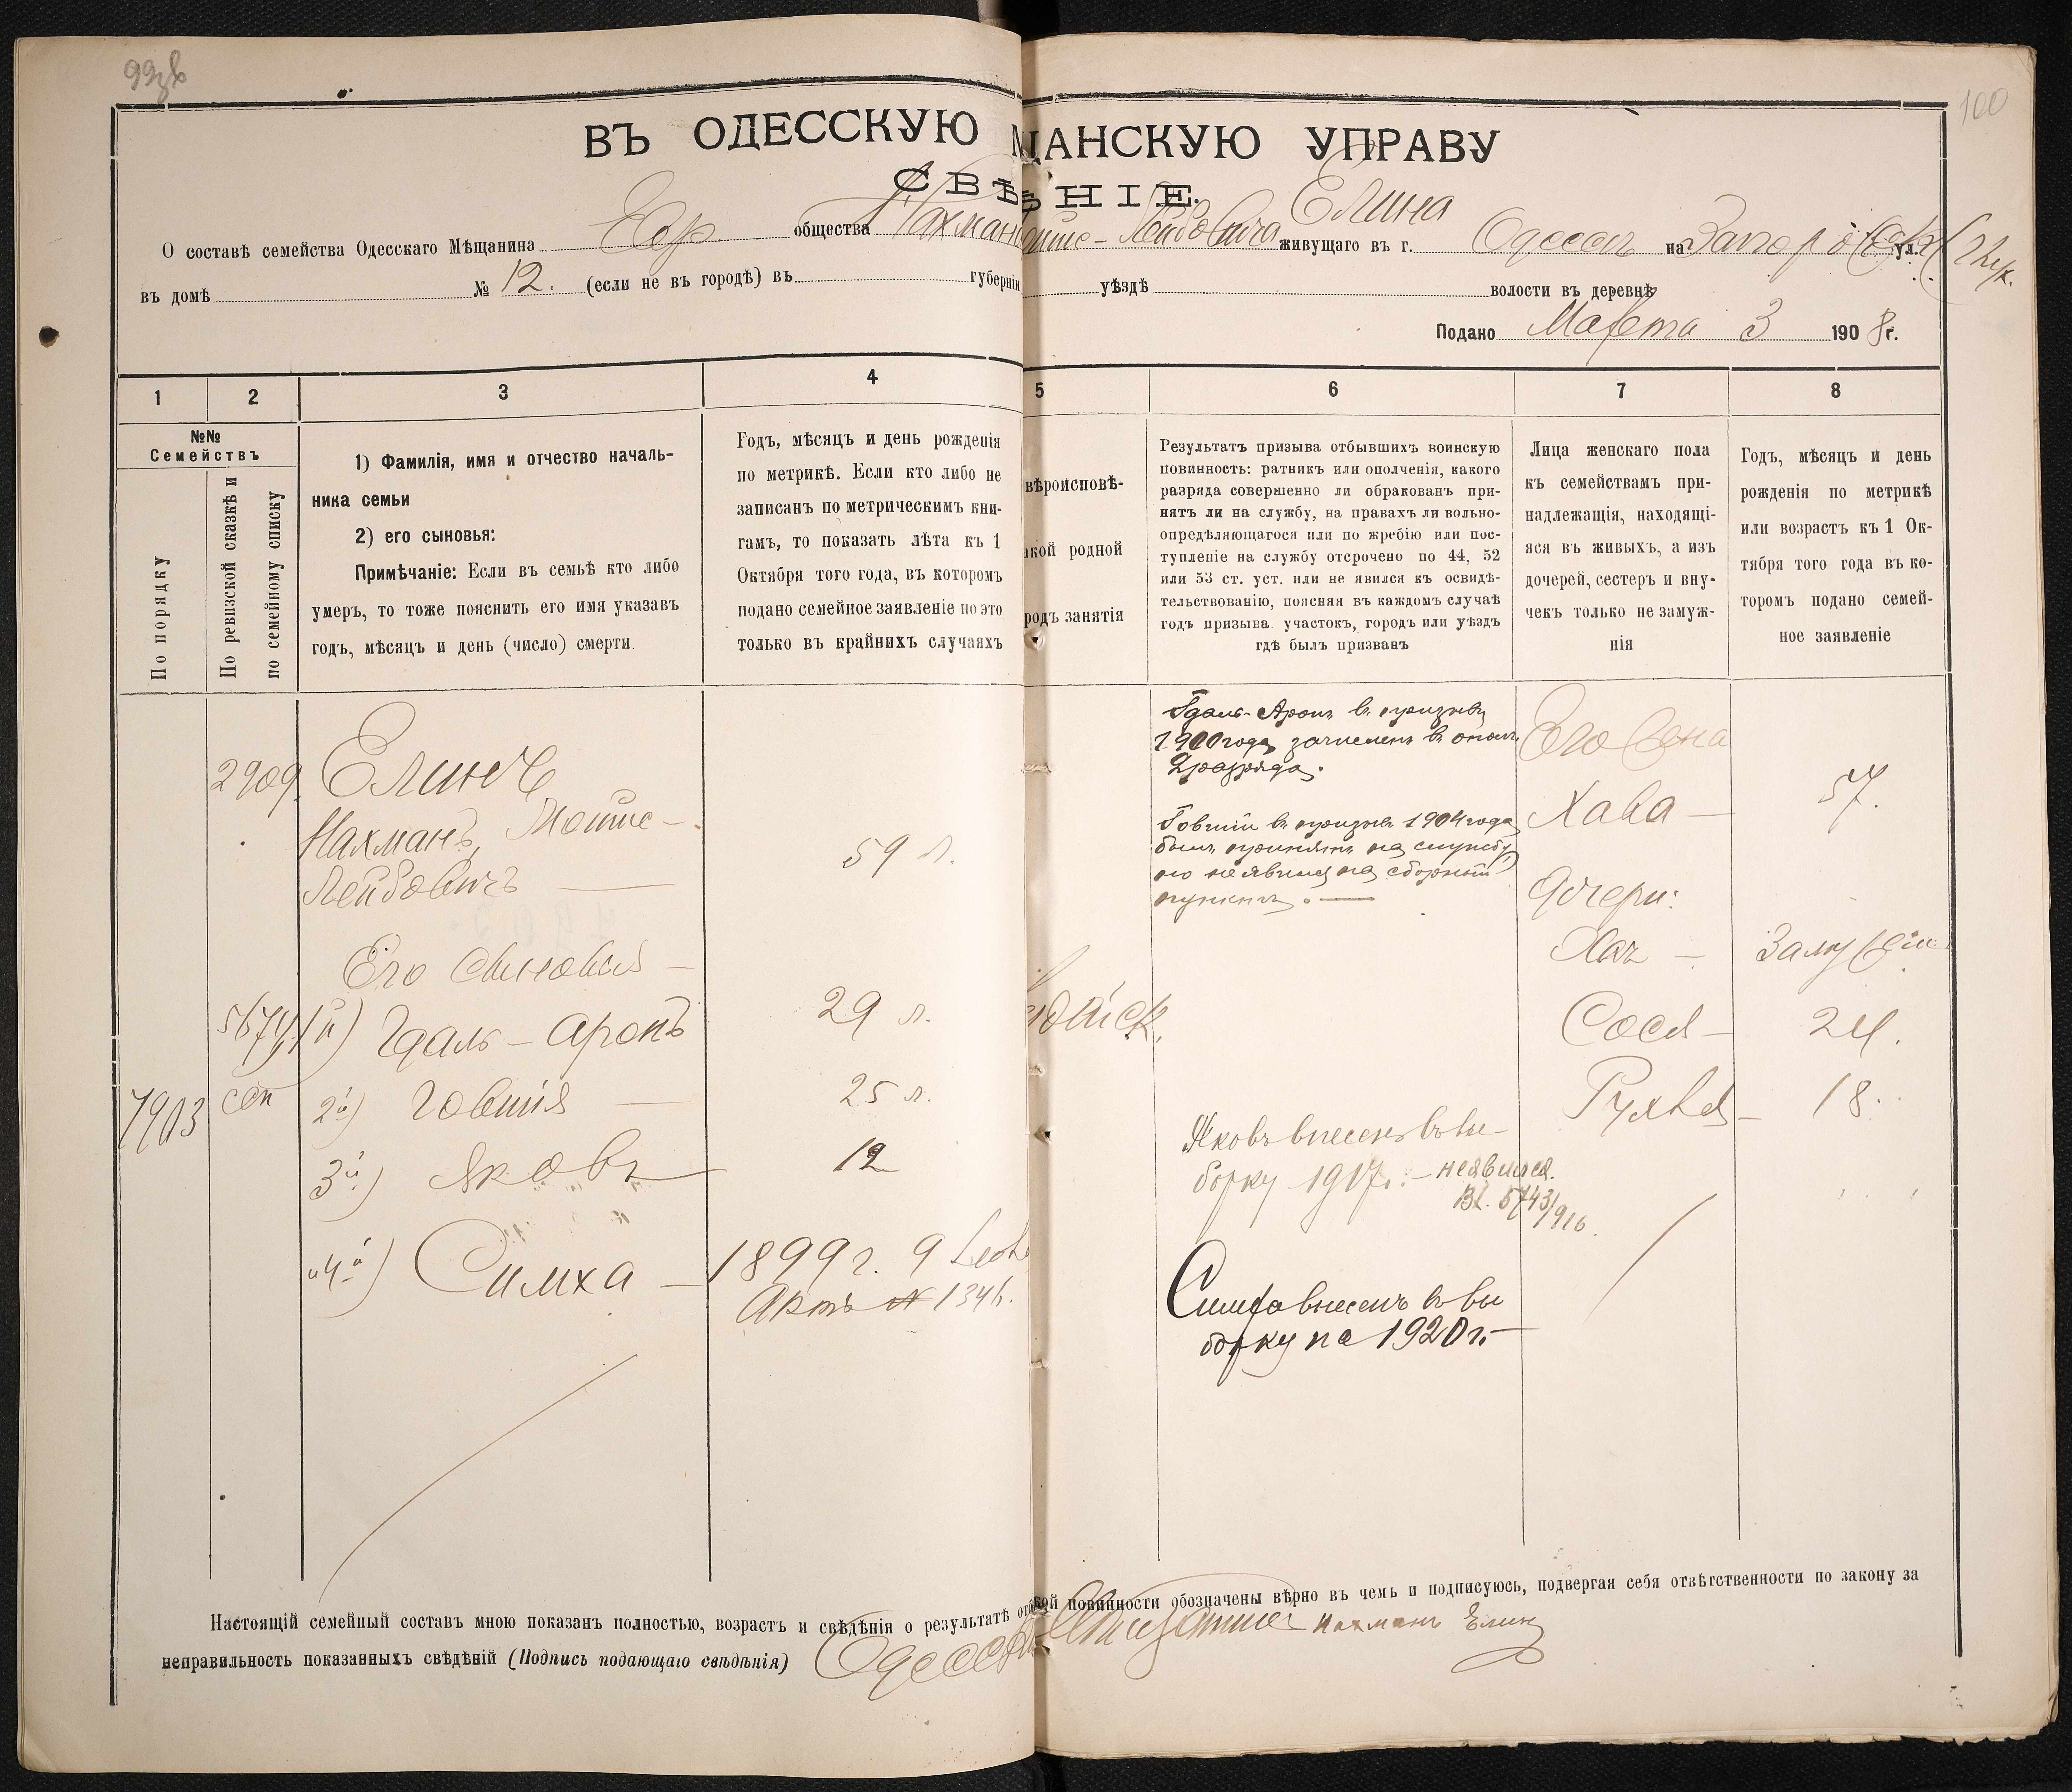 100
ВЪ ОДЕССКУЮ МѢЩАНСКУЮ УПРАВУ
СВѢДѢНІЕ.
О составѣ семейства Одесскаго Мѣщанина Евр. общества Нахмана Мойше-Лейбовича Елина живущаго въ г. Одессѣ на ул.
въ домѣ № 12. (если не въ городѣ) въ губерніи уѣздѣ волости въ деревнѣ
Подано Марта 3 1908 г.
1 2 3 4 5 6 7 8
№№
Семействъ
По порядку
По ревизской сказкѣ и
по семейному списку
1) Фамилія, имя и отчество началь-
ника семьи
2) его сыновья:
Примѣчаніе: Если въ семьѣ кто либо
умеръ, то тоже пояснить его имя указавъ
годъ, мѣсяцъ и день (число) смерти.
Годъ, мѣсяцъ и день рожденія
по метрикѣ. Если кто либо не
записанъ по метрическимъ кни-
гамъ, то показать лѣта къ 1
Октября того года, въ которомъ
подано семейное заявленіе но это
только въ крайнихъ случаяхъ
вѣроисповѣ-
акой родной
родъ занятія
Результатъ призыва отбывшихъ воинскую
повинность: ратникъ или ополченія, какого
разряда совершенно ли обракованъ при-
нятъ ли на службу, на правахъ ли вольно-
опредѣляющагося или по жребію или пос-
тупленіе на службу отсрочено по 44, 52
или 53 ст. уст. или не явился къ освидѣ-
тельствованію, поясняя въ каждомъ случаѣ
годъ призыва участокъ, городъ или уѣздъ
гдѣ былъ призванъ
Лица женскаго пола
къ семействамъ при-
надлежащія, находящі-
яся въ живыхъ, а изъ
дочерей, сестеръ и вну-
чекъ только не замуж-
нія
Годъ, мѣсяцъ и день
рожденія по метрикѣ
или возрастъ къ 1 Ок-
тября того года въ ко-
торомъ подано семей-
ное заявленіе
2909.
Елинъ
Нахманъ, Мойше-
Лейбовичъ
59 л.
Гдаль-Аронъ въ призывъ
1900 года зачисленъ въ опол.
2 разряда.
Говшій въ призывъ 1904 года
былъ принятъ на службу,
но не явился на сборный
пунктъ.
Его жена
Хава — 57.
Дочери:
Хая — Замужем
Сося — 24.
Рухля — 18.
Его сыновья —
1й) Гдаль-Аронъ 29 л.
7903
2й) Говшія — 25 л.
3й) Яковъ 12
"4й) Симха — 1899 г. 9
Актъ № 1346.
Яковъ внесенъ въ вы-
борку 1917 г. — неявился.
Вх. 5743/916.
Симха внесенъ въ вы
борку на 1920 г. —
Настоящій семейный составъ мною показанъ полностью, возрастъ и свѣдѣнія о результатѣ отбы кой повинности обозначены вѣрно въ чемъ и подписуюсь, подвергая себя отвѣтственности по закону за
неправильность показанныхъ свѣдѣній (Подпись подающаго свѣдѣнія) Одесскій Нахманъ Елинъ